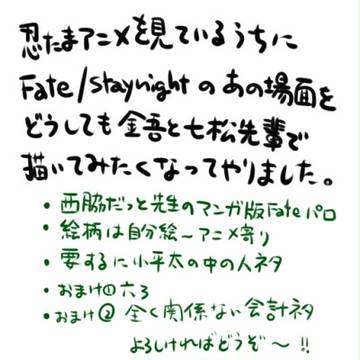 忍たまアニメを見ているうちに
Fate/staynightのあの場面を
どうしても金吾と七松先輩で
描いてみたくなってやりました。
・西脇だっと先生のマンガ版Fateパロ
・絵柄は自分絵〜アニメ寄り
・要するに小平太の中の人ネタ
・おまけ①六ろ
・おまけ②全く関係ない会計ネタ
よろしければどうぞ〜!!